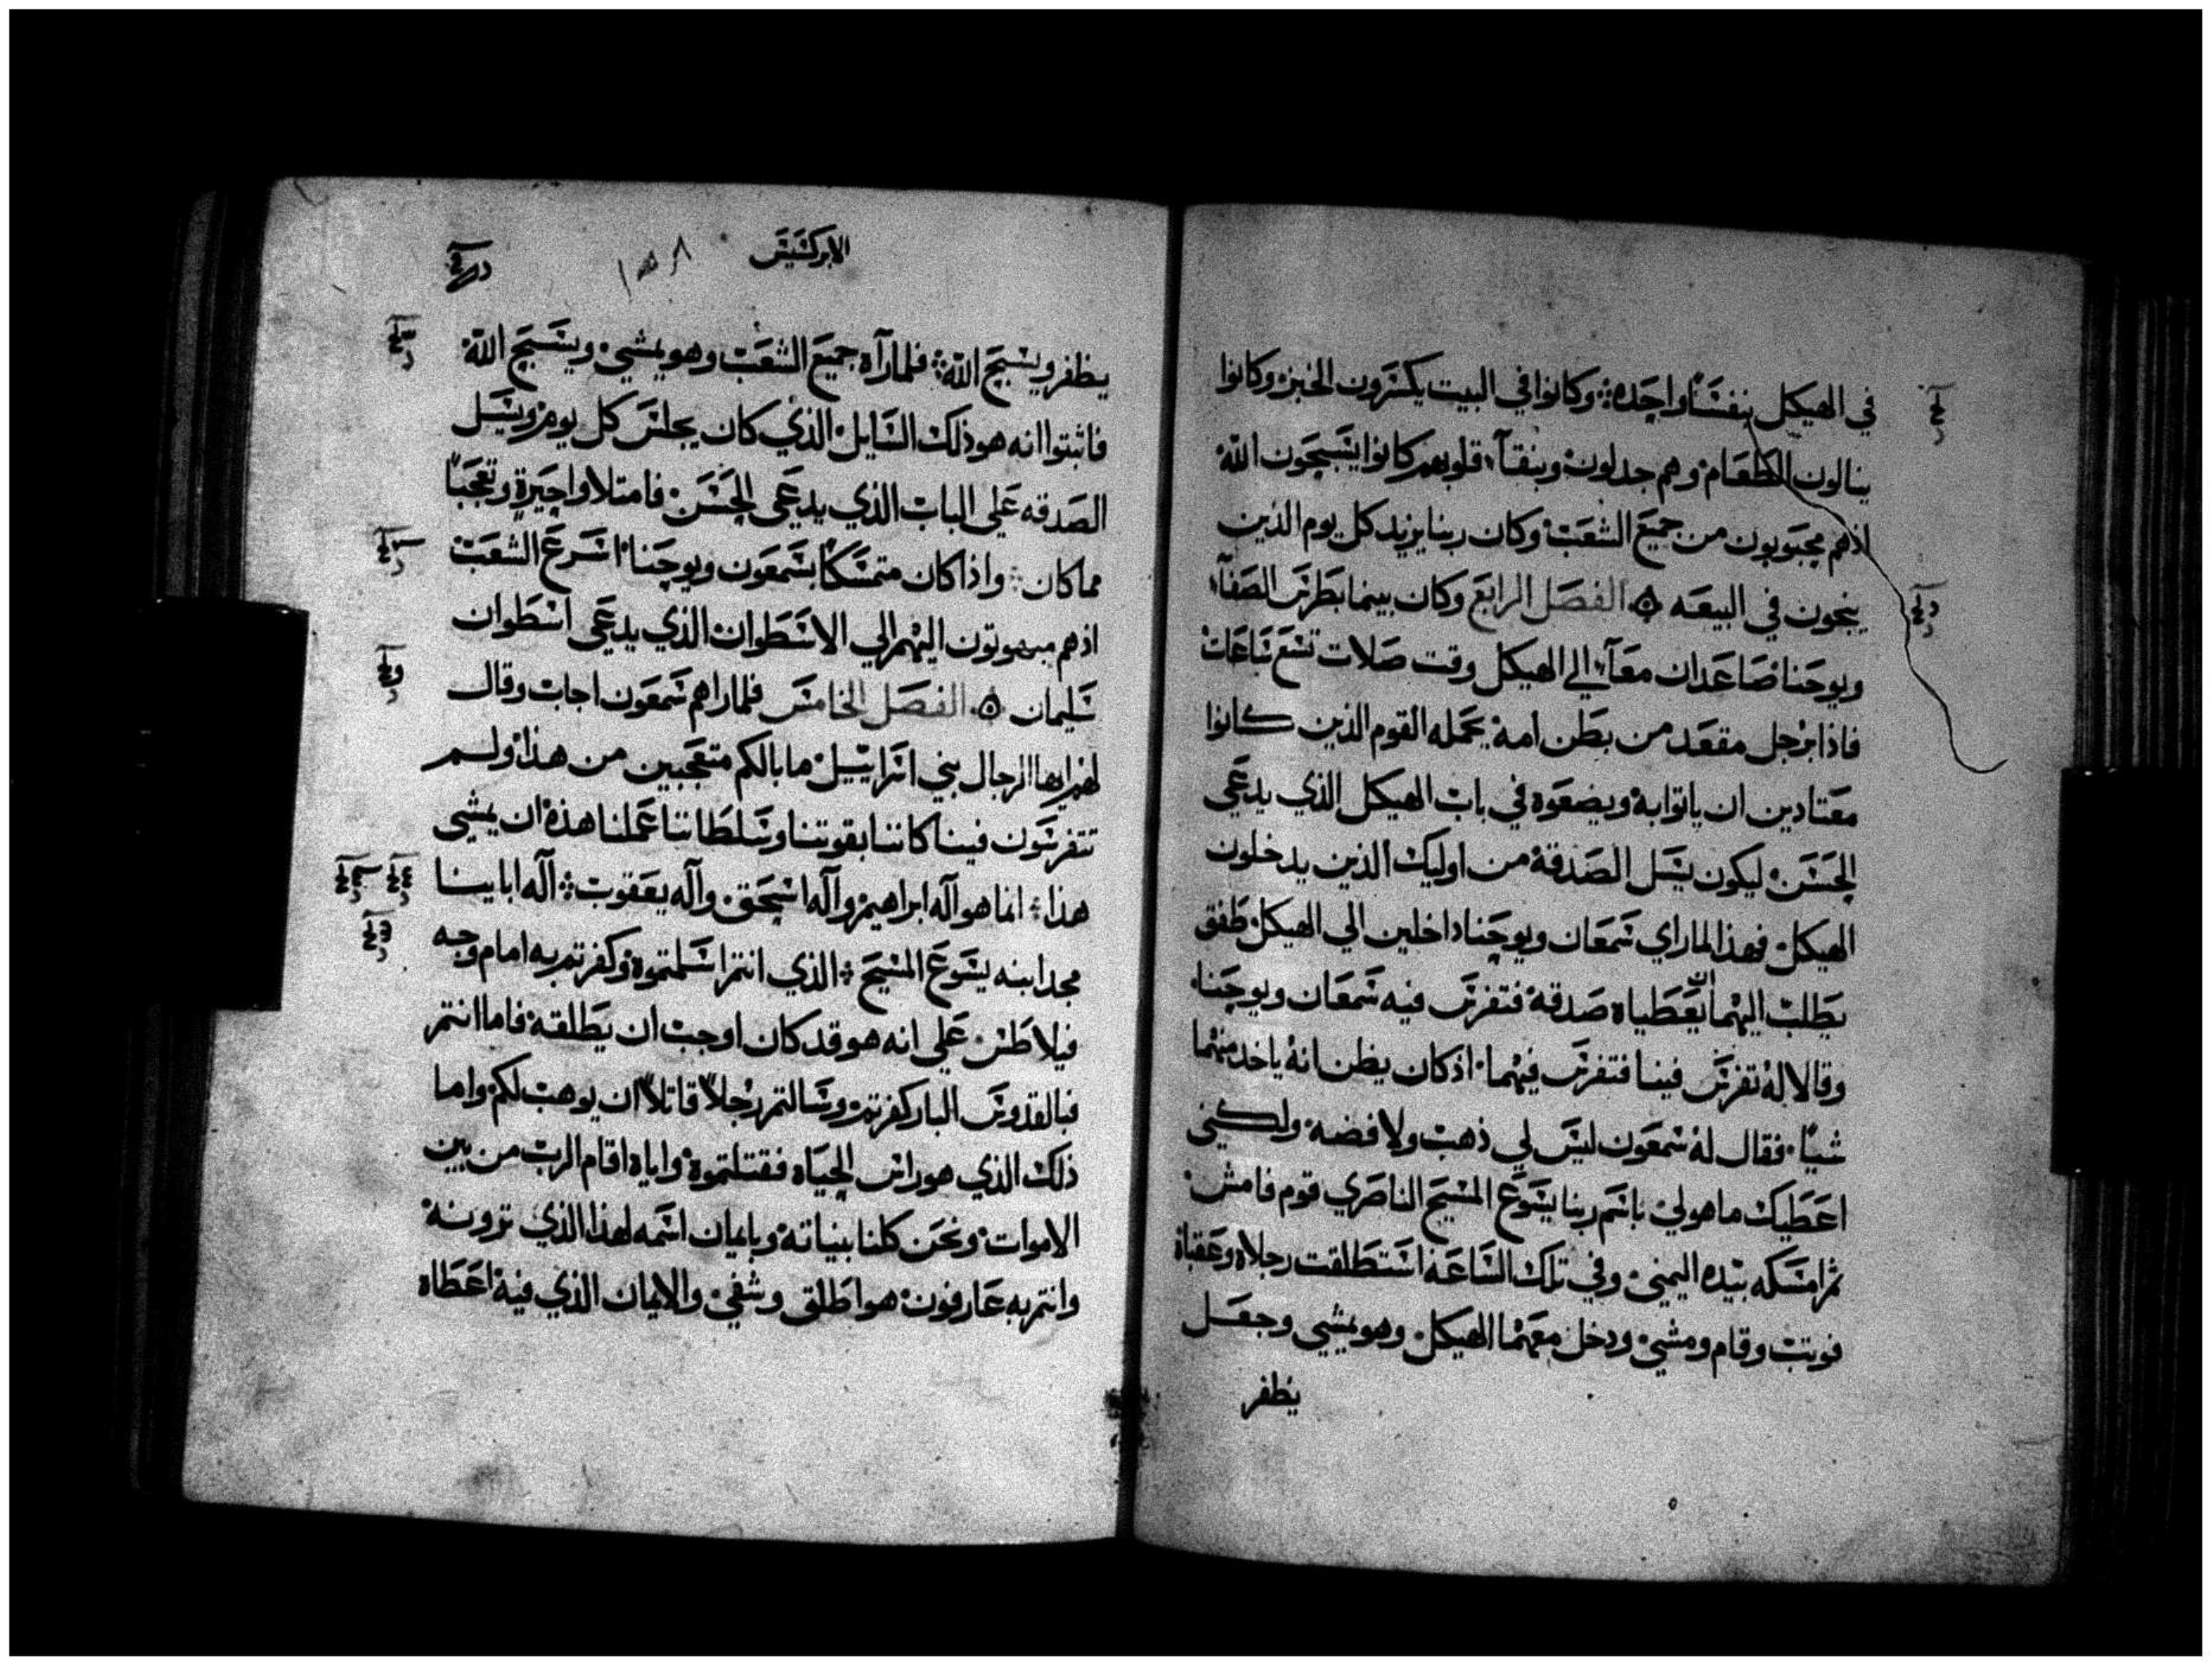 في الهيكل بنفسًا واحده وكانوا في البيت يكسرون الخبز وكانوا
ينالون الطعام وهم جدلون وبنقآء قلوبهم كانوا يسبحون الله
اذ هم محبوبون من جميع الشعب وكان ربنا يزيد كل يوم الذين
ينجون في البيعه الفصل الرابع وكان بينما بطرس الصفآء
ويوحنا صاعدان معآ الي الهيكل وقت صلات تسع ساعات
فاذا برجل مقعد من بطن امه يحمله القوم الذين كانوا
معتادين ان ياتوا به ويضعوه في باب الهيكل الذي يدعي
الحسن ليكون يسل الصدقة من اوليك الذين يدخلون
الهيكل فهذا لما راي سمعان ويوحنا داخلين الي الهيكل طفق
يطلب اليهما ان يعطياه صدقة فتفرس فيه سمعان ويوحنا
وقالا له تفرس فينا فتفرس فيهما اذ كان يظن انه ياخد منهما
شيًا فقال له سمعون ليس لي ذهب ولا فضه ولكني
اعطيك ما هو لي باسم ربنا يسوع المسيح الناصري قوم فامش
ثم امسكه بيده اليمني وفي تلك الساعه استطلقت رجلاه وعقباه
فوتب وقام ومشي ودخل معهما الهيكل وهو يمشي وجعل
يظفر
الابركسيس
١٥٨
يظفر ويسبح الله فلما رآه جميع الشعب وهو يمشي ويسبح الله
فاثبتوا انه هو ذلك السايل الذي كان يجلس كل يوم ويسل
الصدقه علي الباب الذي يدعي الحسن فامتلاوا حيرة وتعجبًا
مما كان واذ كان متمسكًا بسمعون ويوحنا اسرع الشعب
اذ هم مبهوتون اليهم الي الاسطوان الذي يدعي اسطوان
سليمان الفصل الخامس فلما راهم سمعون اجاب وقال
لهم ايها الرجال بني اسراييل ما بالكم متعجبين من هذا ولم
تتفرسون فينا كاننا بقوتنا وسلطاننا عملنا هذه ان يمشي
هذا انما هو آله ابراهيم وآله اسحق وآله يعقوب آله اباينا
مجد ابنه يسوع المسيح الذي انتم اسلمتموه وكفرتم به امام وجه
فيلاطس علي انه هو قد كان اوجب ان يطلقه فاما انتم
فبالقدوس البار كفرتم وسالتم رجلاً قاتلاً ان يوهب لكم واما
ذلك الذي هو راس الحياه فقتلتموه واياه اقام الرب من بين
الاموات ونحن كلنا بيناته وبايمان اسمه لهذا الذي ترونه
وانتم به عارفون هو اطلق وشفي والايمان الذي فيه اعطاه